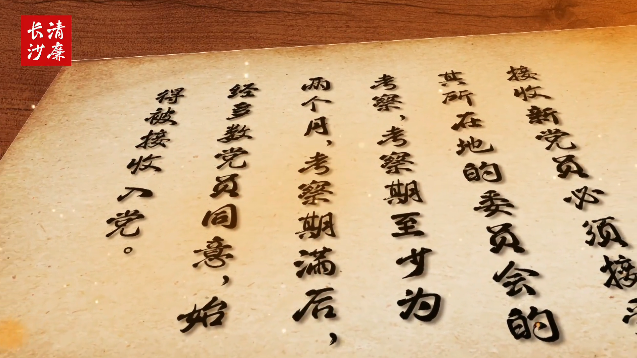 清廉
长沙
接收新党员必须接
其所在地的委员会的
考察，考察期至少为
两个月，考察期满后，
经多数党员同意，始
得被接收入党。